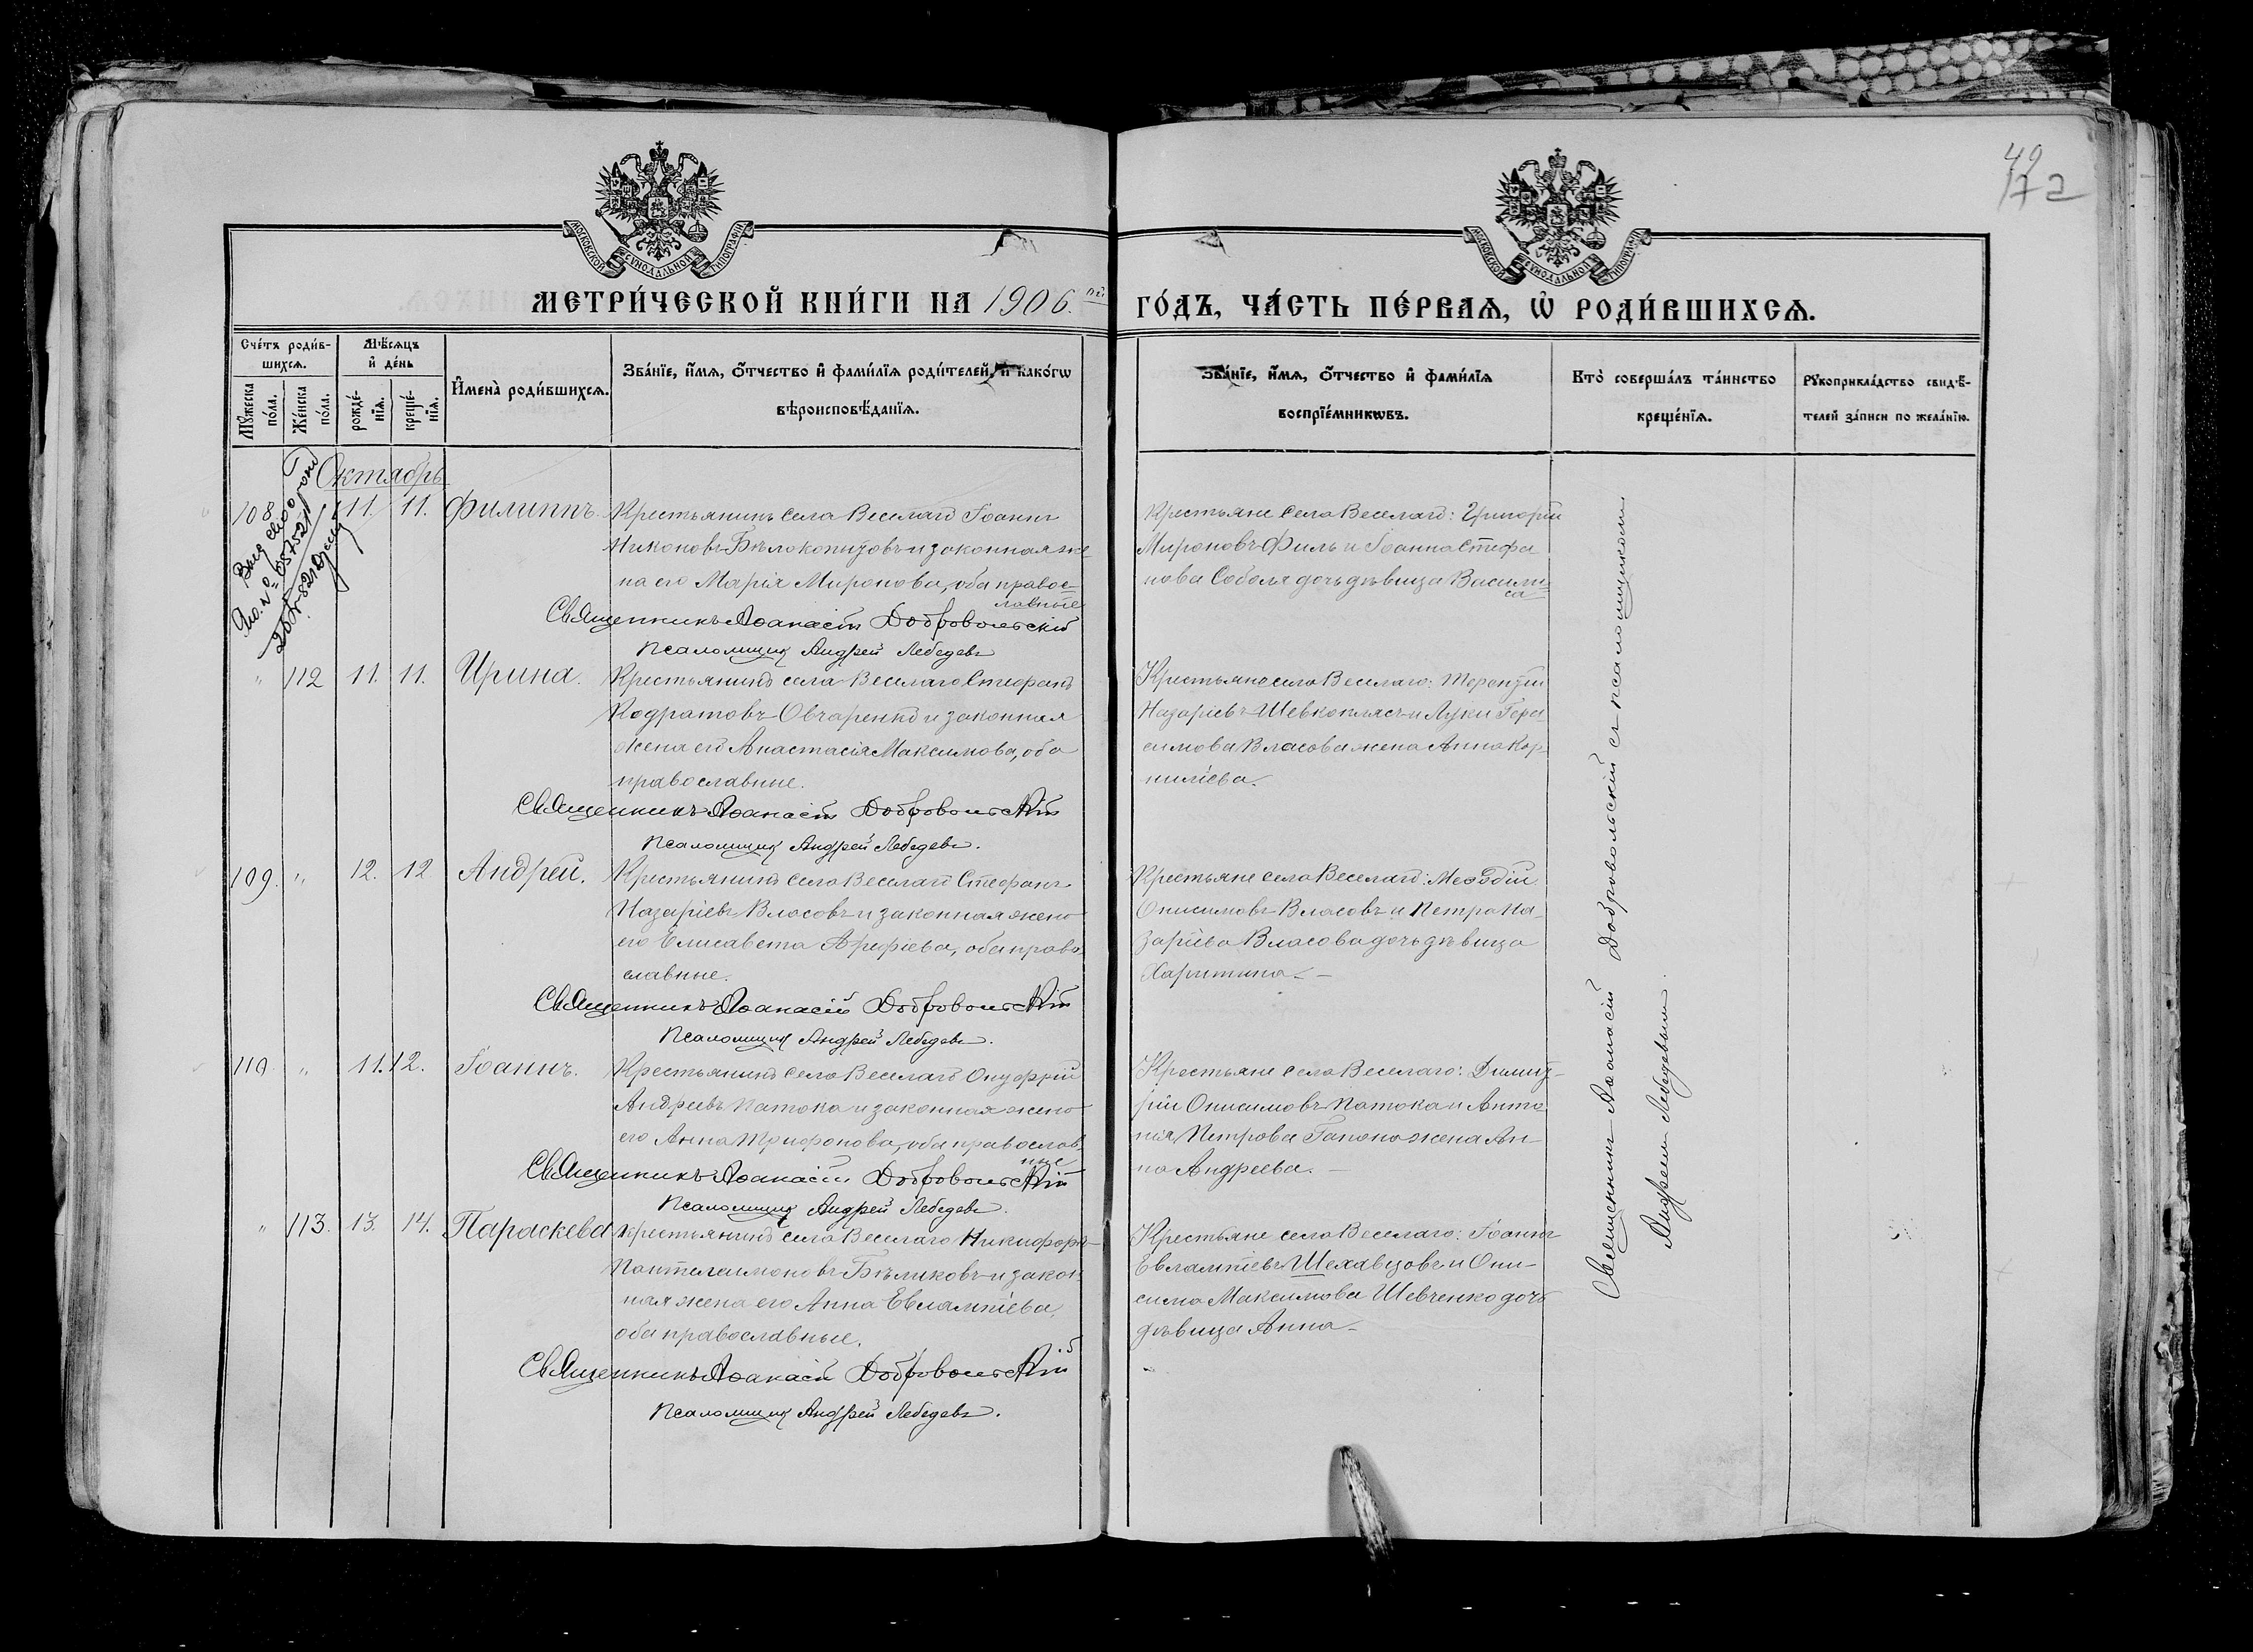 49
72
МОСКОВСКОЙ СѴНОДАЛЬНОЙ ТИПОГРАФІИ
МОСКОВСКОЙ СѴНОДАЛЬНОЙ ТИПОГРАФІИ
МЕТРИ́ЧЕСКОЙ КНИ́ГИ НА 1906.
ГО́ДЪ, ЧА́СТЬ ПЕ́РВАѦ, Ѡ҆ РОДИ́ВШИХСѦ.
Сче́тъ роди́в-
шихсѧ.
Мꙋ́жеска по́ла.
Же́нска по́ла.
Мѣ́сѧцъ
и҆ де́нь
рожде́-нїѧ.
креще́-нїѧ.
И҆мена̀ роди́вшихсѧ.
Зва́нїе, и҆́мѧ, ѻ҆́тчество и҆ фами́лїѧ роди́телей, и҆ како́гѡ
вѣроисповѣ́данїѧ.
Зва́нїе, и҆́мѧ, ѻ҆́тчество и҆ фами́лїѧ
воспрїе́мникѡвъ.
Кто̀ соверша́лъ та́инство
креще́нїѧ.
Рꙋкоприкла́дство свидѣ́-
телей за́писи по жела́нїю.
Октябрь
108. 11. 11. Филиппъ.
Крестьянинъ села Веселаго Іоаннъ
Никоновъ Бѣлокопытовъ и законная же
на его Марія Миронова, оба правос-
лавные
Священникъ Аѳанасій Добровольскій
Псаломщикъ Андрей Лебедевъ
Крестьяне села Веселаго: Григорій
Мироновъ Филь и Іоанна Стефа
нова Соболя дочь дѣвица Васили-
са
" 112 11. 11. Ирина.
Крестьянинъ села Веселаго Стефанъ
Кодратовъ Овчаренко и законная
жена его Анастасія Максимова, оба
православные.
Священникъ Аѳанасій Добровольскій
Псаломщикъ Андрей Лебедевъ.
Крестьяне села Веселаго: Терентій
Назаріевъ Шевкоплясъ и Луки Гера
симова Власова жена Анна Кор-
ниліева.
109. " 12. 12 Андрей.
Крестьянинъ села Веселаго Стефанъ
Назаріевъ Власовъ и законная жена
его Елисавета Арефіева, оба право
славные.
Священникъ Аѳанасій Добровольскій
Псаломщикъ Андрей Лебедевъ.
Крестьяне села Веселаго: Меѳодій
Онисимовъ Власовъ и Петра На-
заріева Власова дочь дѣвица
Харитина.
110 " 11. 12. Іоаннъ.
Крестьянинъ села Веселаго Онуфрій
Андреевъ Патока и законная жена
его Анна Трифонова, оба православ
ные
Священникъ Аѳанасій Добровольскій
Псаломщикъ Андрей Лебедевъ.
Крестьяне села Веселаго: Димит-
рій Онисимовъ Патока и Анто
нія Петрова Гапона жена Ан-
на Андреева.
" 113. 13. 14. Параскева
Крестьянинъ села Веселаго Никифоръ
Пантелаимоновъ Бѣликовъ и закон
ная жена его Анна Евлампіева,
оба православные.
Священникъ Аѳанасій Добровольскій
Псаломщикъ Андрей Лебедевъ.
Крестьяне села Веселаго: Іоаннъ
Евлампіевъ Шехавцовъ и Они-
сима Максимова Шевченко дочь
дѣвица Анна
Священникъ Аѳанасій Добровольскій съ псаломщикомъ
Андреемъ Лебедевымъ.